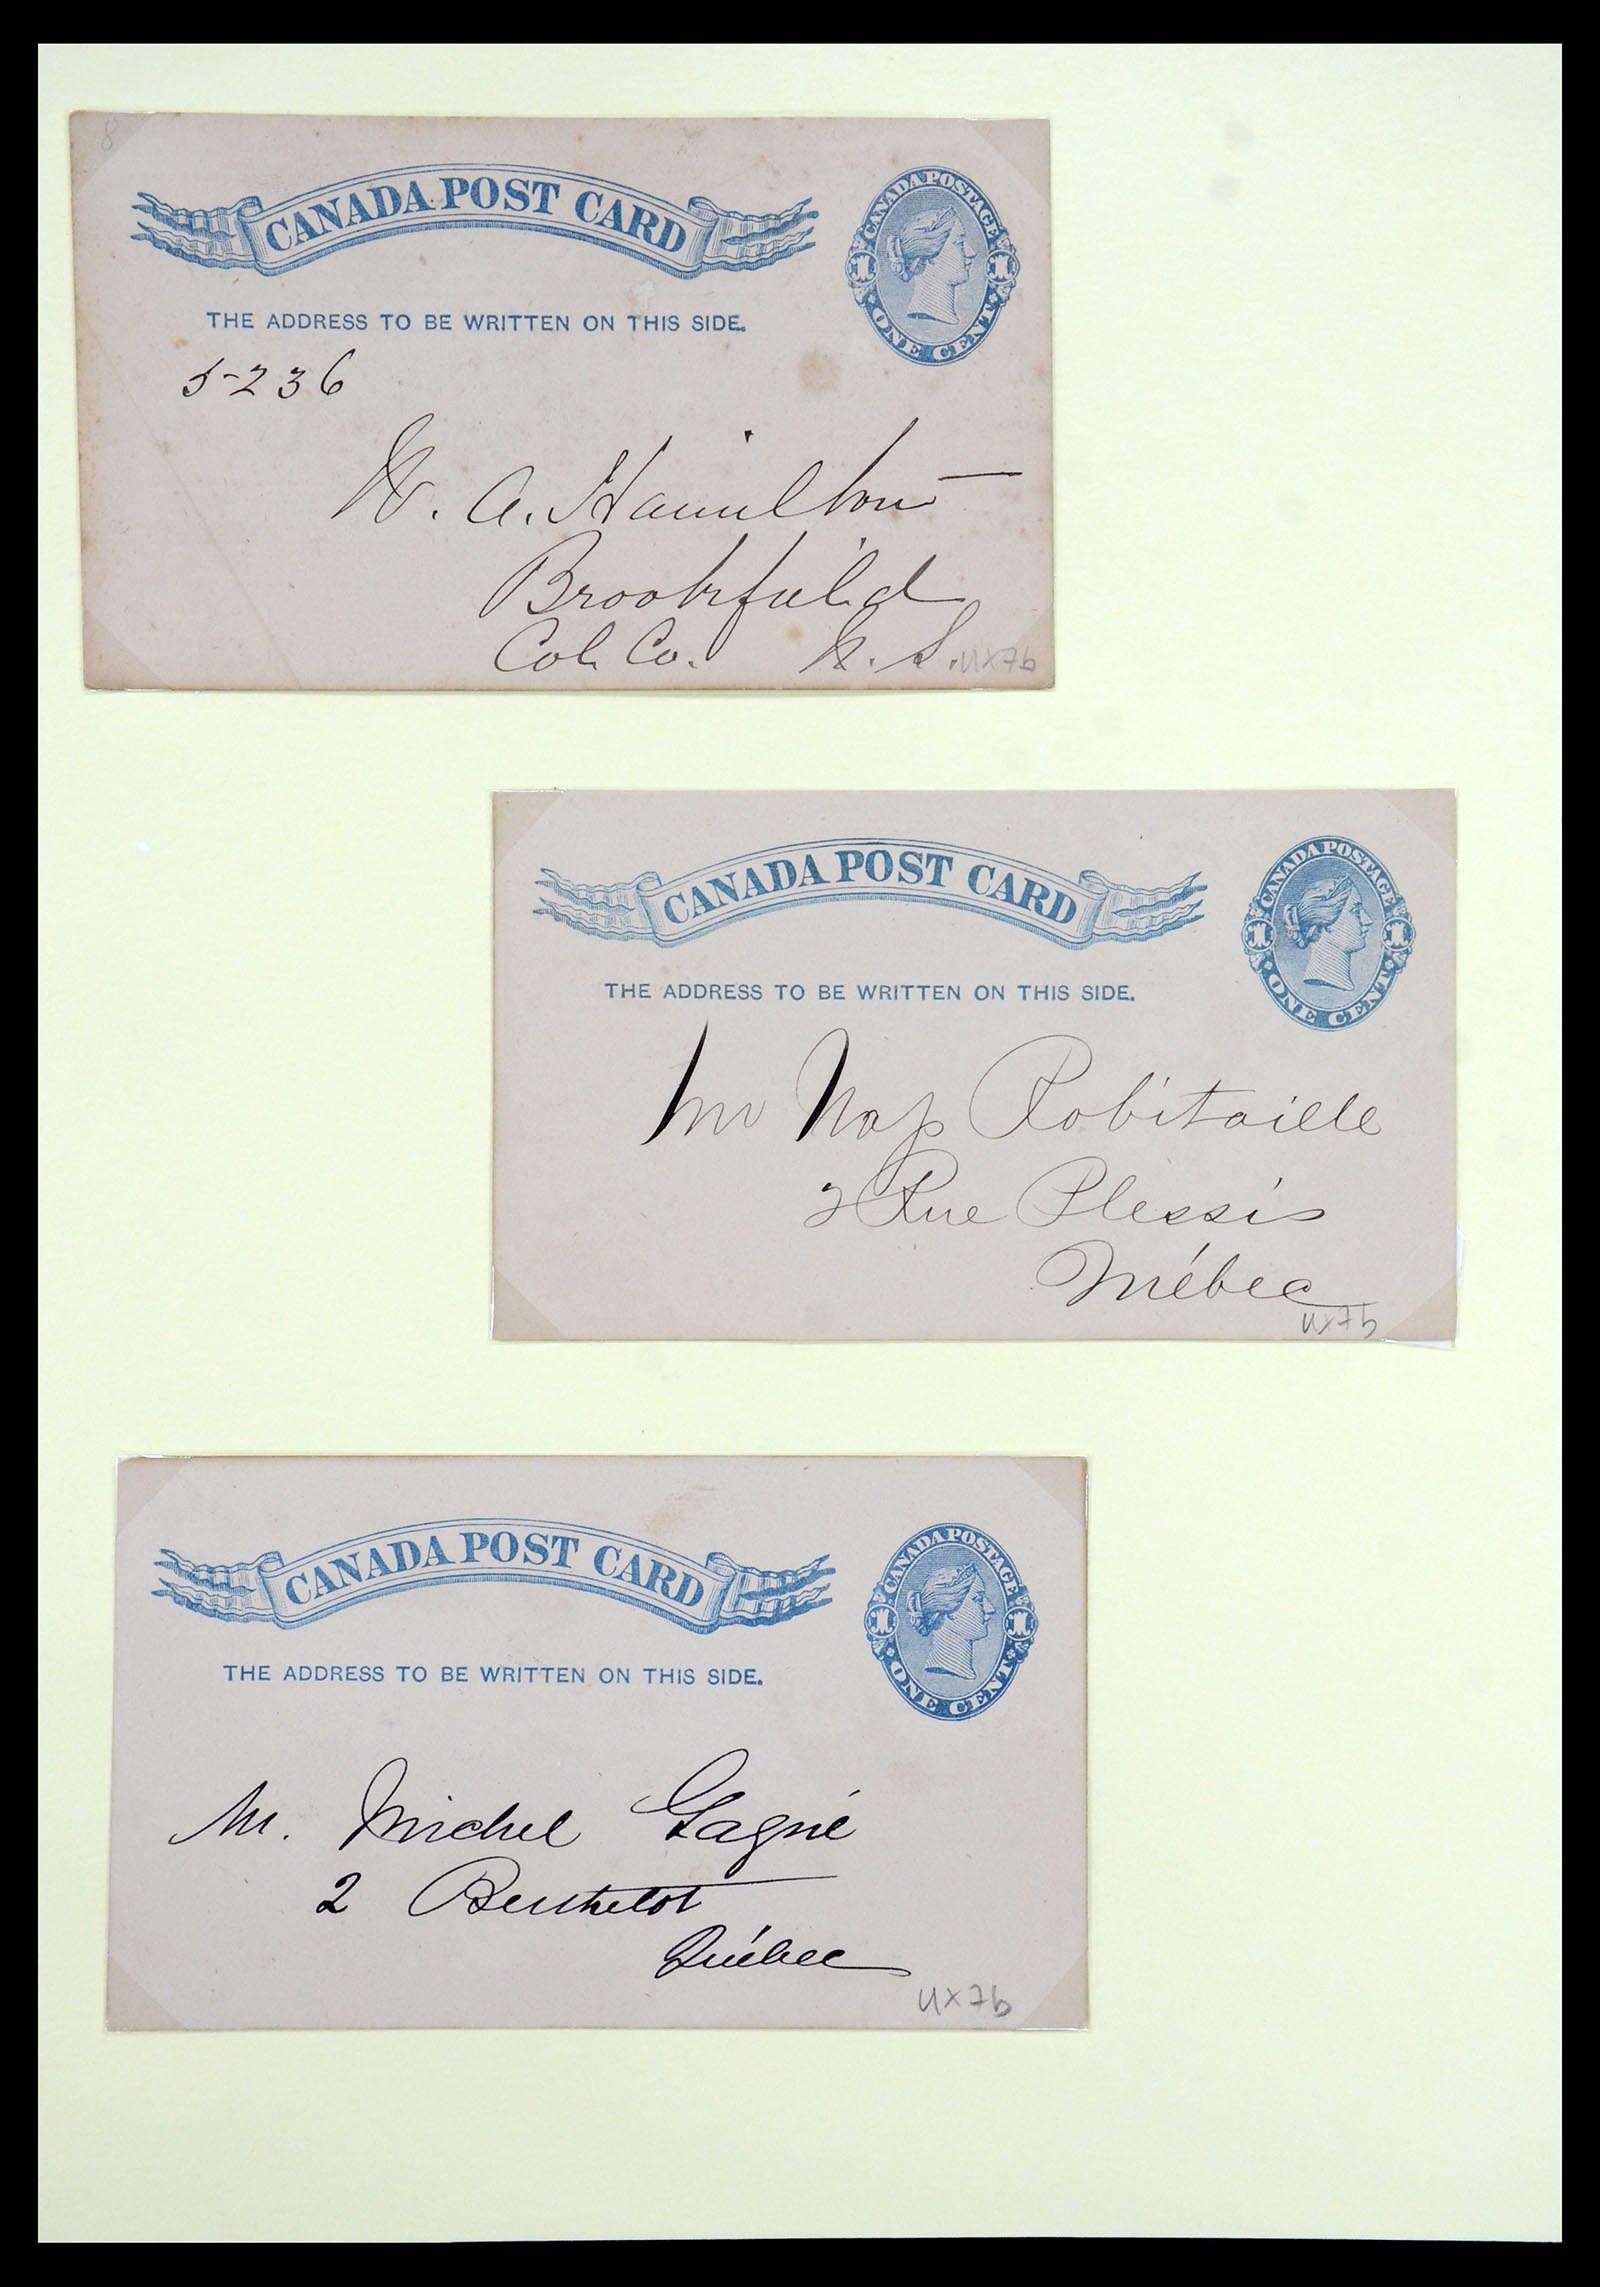 8
CANADA POST CARD
CANADA POSTAGE
1 1
ONE CENT
THE ADDRESS TO BE WRITTEN ON THIS SIDE.
5-236
W. A. Hamilton
Brookfield
Col. Co. N. S.
UX7b
CANADA POST CARD
CANADA POSTAGE
1 1
ONE CENT
THE ADDRESS TO BE WRITTEN ON THIS SIDE.
Mr Nap Robitaille
2 Rue Plessis
Québec
UX7b
CANADA POST CARD
CANADA POSTAGE
1 1
ONE CENT
THE ADDRESS TO BE WRITTEN ON THIS SIDE.
M. Michel Gagné
2 Berthelot
Québec
UX7b